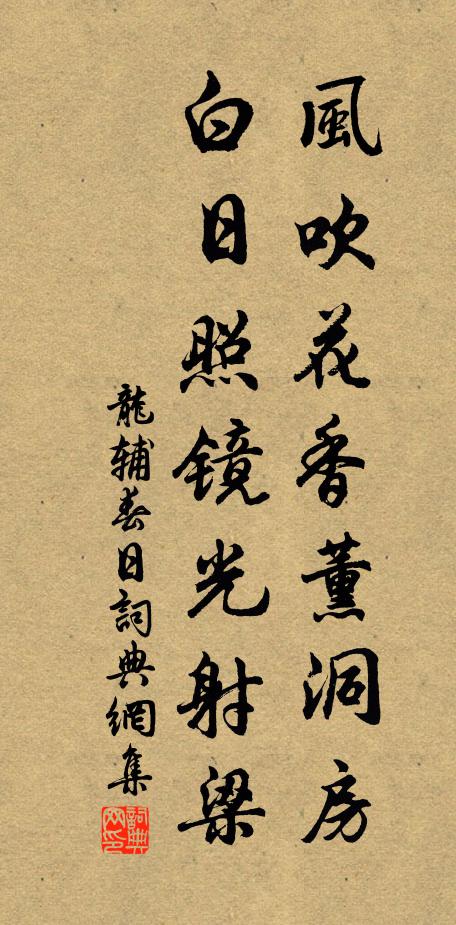 風吹花香薰洞房
白日照镜光射梁
龍辅春日詞典網集
詞典网印